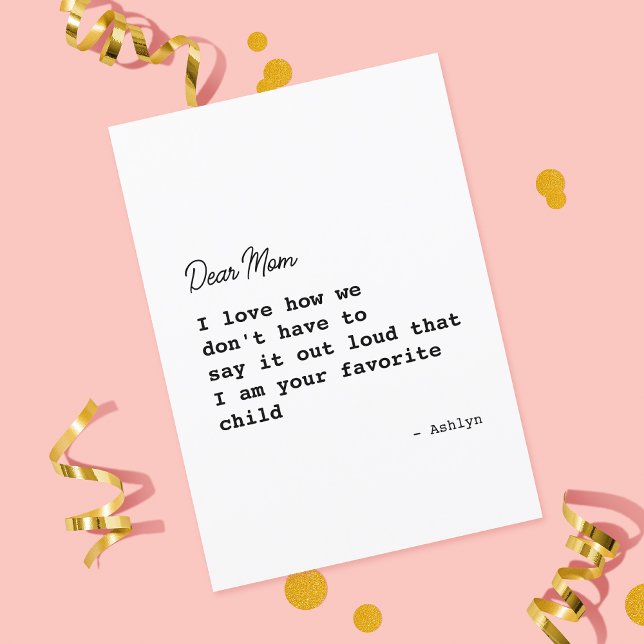 Dear Mom
I love how we
don't have to
say it out loud that
I am your favorite
child
– Ashlyn